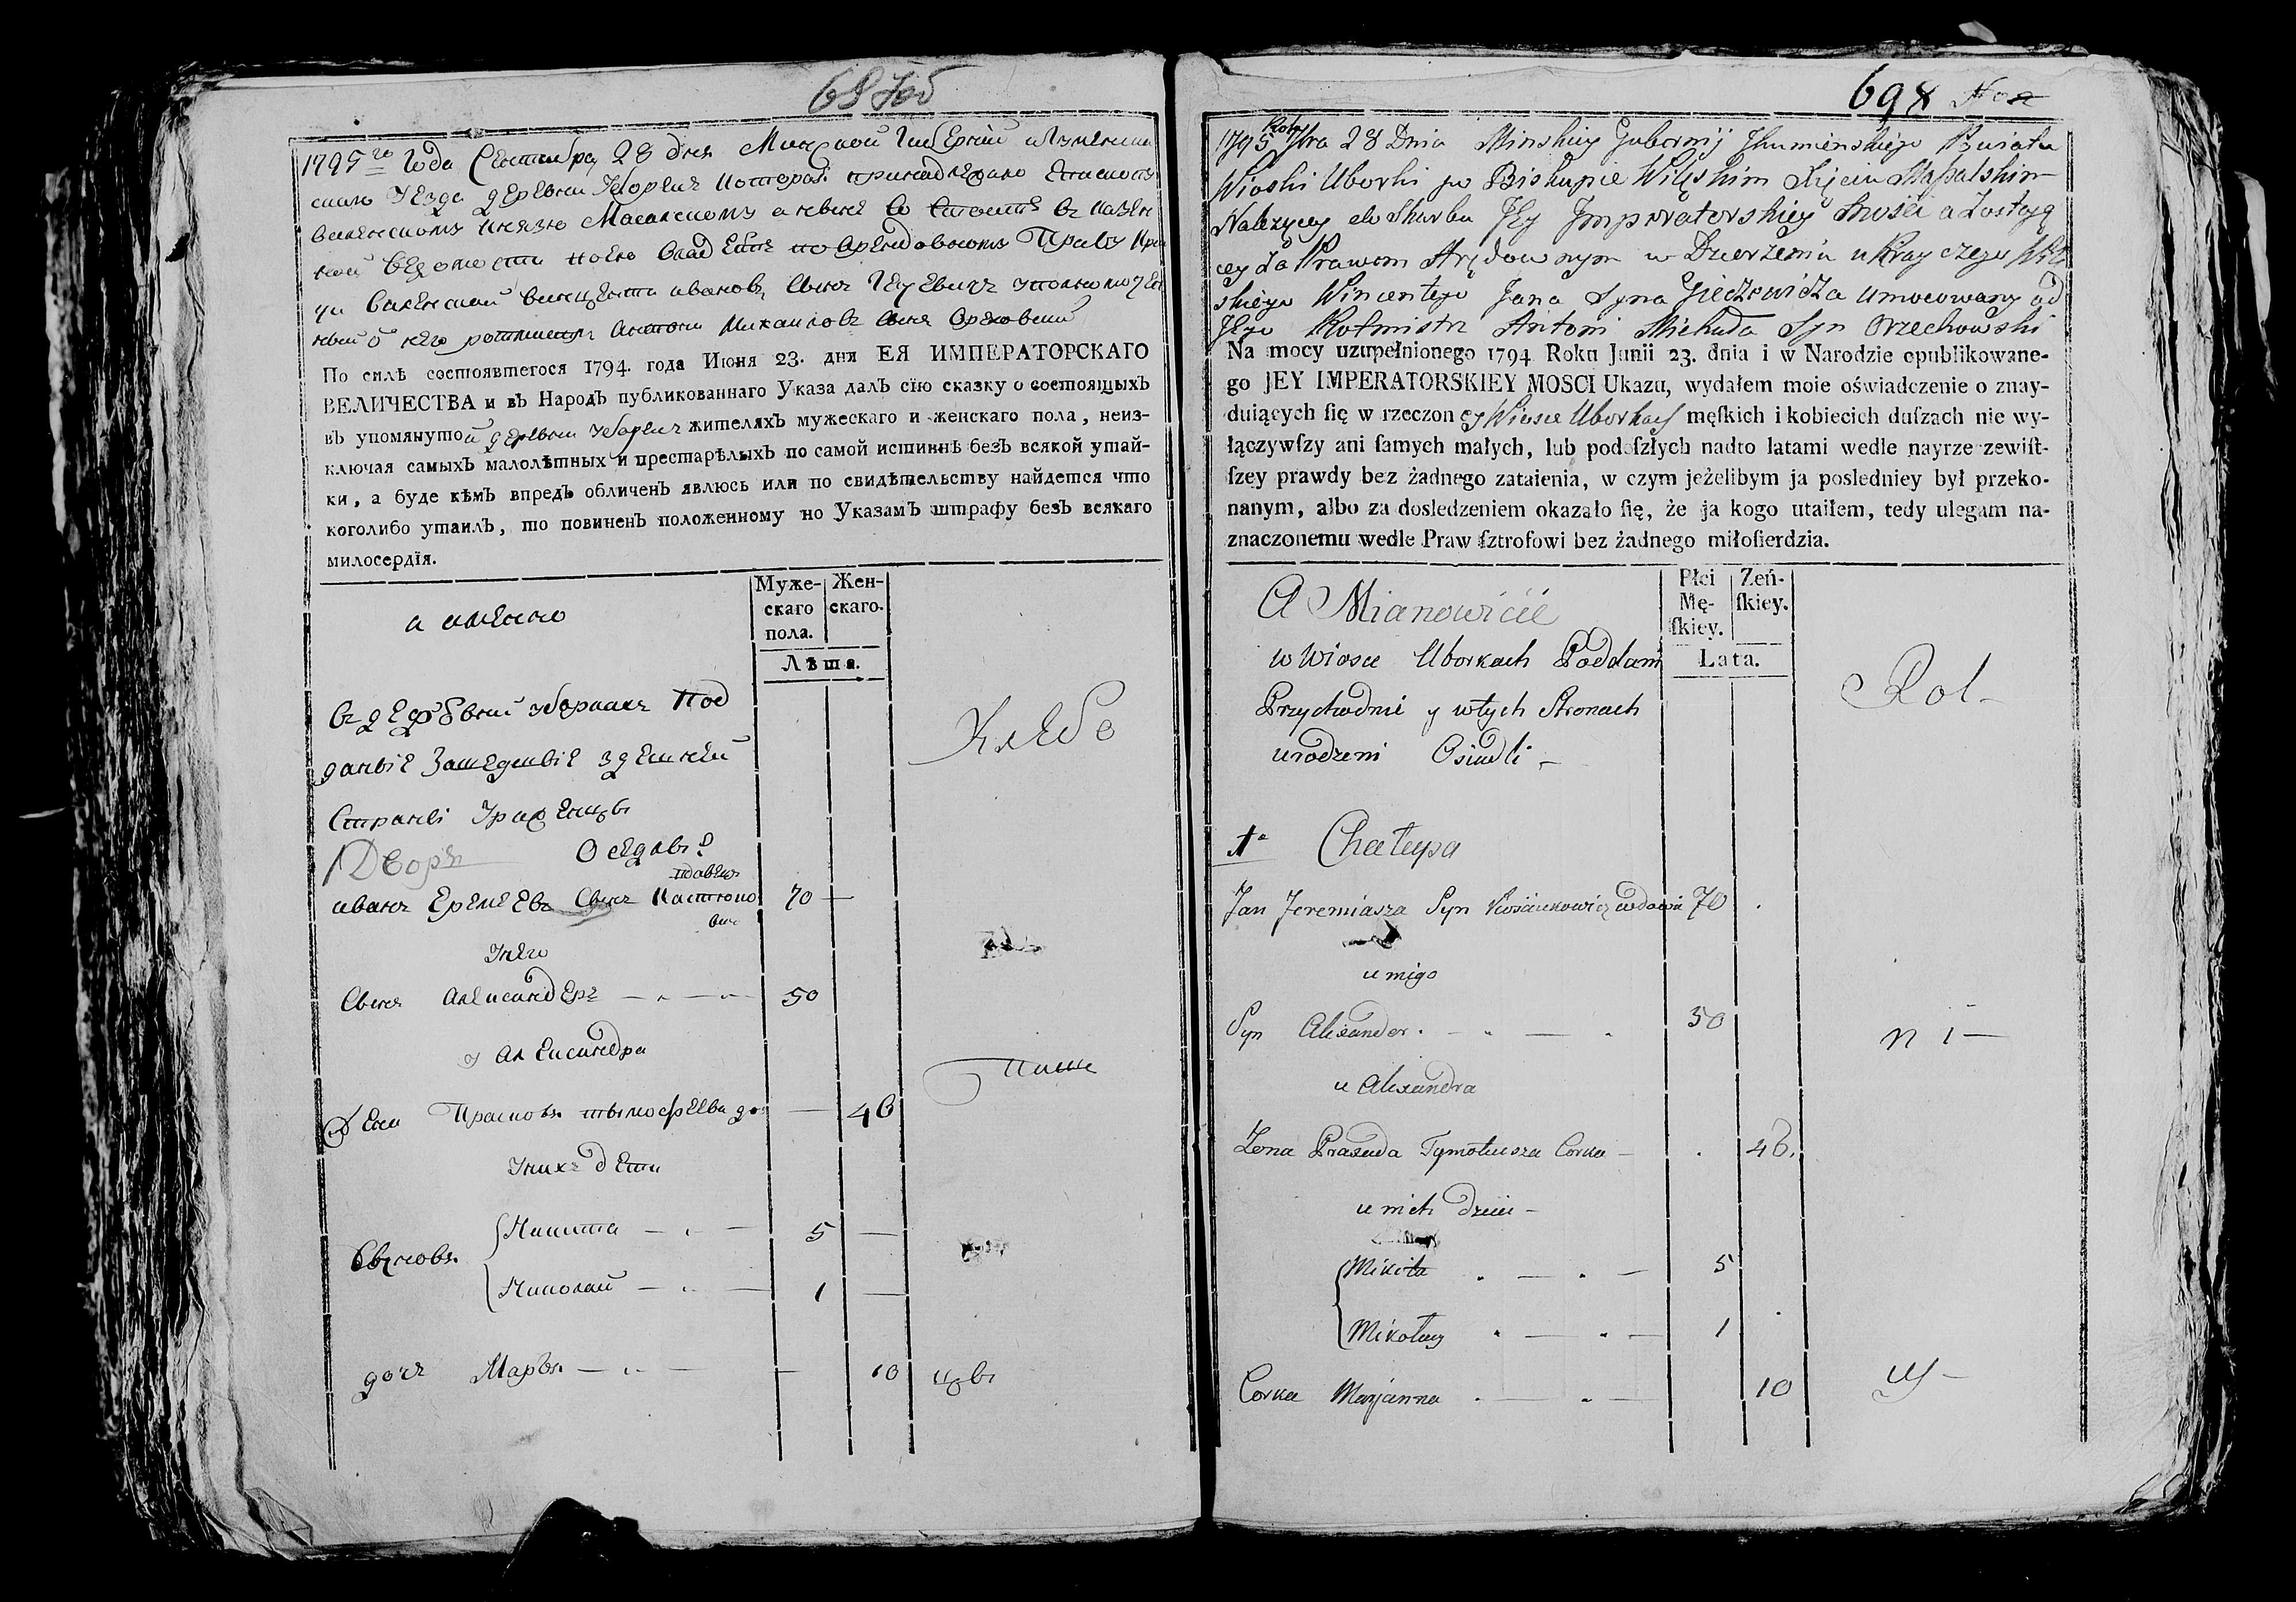 697об
1795го Года Сентября 28 дня Минской Губернии Игуменска
скаго уезда деревни Уборкъ которая принадлежало епископу
виленскому князю Масалскому а ныне состоитъ в казен
ной ведомости коею владеетъ по арендовному праву кра
чи виленский винценти ивановъ сынъ уполномоченъ
ный о него ротмистръ антони михаиловъ сынъ Ореховский
По силѣ состоявшегося 1794. года Июня 23. дня ЕЯ ИМПЕРАТОРСКАГО
ВЕЛИЧЕСТВА и въ Народъ публикованнаго Указа далъ сїю сказку о состоящыхъ
въ упомянутой деревни Уборкъ жителяхъ мужескаго и женскаго пола, неиз-
ключая самыхъ малолѣтныхъ и престарѣлыхъ по самой истиннѣ безъ всякой утай-
ки, а буде кѣмъ впредь обличенъ явлюсь или по свидѣтельству найдется что
коголибо утаилъ, то повиненъ положенному по Указамъ штрафу безъ всякаго
милосердїя.
а именно
Муже- Жен-
скаго скаго.
пола.
Лѣта.
въ деревни уборкахъ под
даныє зашедшиє здешней
страны урожєнцы
1 Дворъ Оседлы
вдовецъ
иванъ Еремеевъ сынъ Костюко 70 —
вичъ
У него
сынъ алєксандеръ 50
у алєксандра
жена Прасковья тымофеева до — 46
У нихъ дети
сыновья { Никита 5 —
{ Николай 1 —
дочь Марья — 10
Хлебо
паш
цы
698
1795 Roku 7bra 28 Dnia Minskiey Gubernij Jhumienskiego Powiatu
Wioski Uborki po Biskupie Wileńskim Xięciu Massalskim
Należącey do Skarbu Jey Imperatorskiey Mości a Zostaią
cey Za Prawem Arędownym w Dzierżeniu u Krayczego Wileń
skiego Wincentego Jana Syna Giedzewicza umocowany od
Jego Rotmistrz Antoni Michała Syn Orzechowski
Na mocy uzupełnionego 1794 Roku Junii 23. dnia i w Narodzie opublikowane-
go JEY IMPERATORSKIEY MOSCI Ukazu, wydałem moie oświadczenie o znay-
duiących ſię w rzeczon ey Wiosce Uborkach męſkich i kobiecich duſzach nie wy-
łączywſzy ani ſamych małych, lub podeſzłych nadto latami wedle nayrze zewiſt-
ſzey prawdy bez żadnego zataienia, w czym jeżelibym ja posledniey był przeko-
nanym, albo za dosledzeniem okazało ſię, że ja kogo utaiłem, tedy ulegam na-
znaczonemu wedle Praw ſztrofowi bez żadnego miłoſierdzia.
A Mianowicie
Płci Zeń-
Mę- ſkiey.
ſkiey.
Lata.
w Wiosce Uborkach Poddani
Przychodnie y wtych Stronach
urodzeni Osiedli —
1a Chałupa
Jan Jeremiasza Syn Kościukowicz wdowiec 70 .
u niego
Syn Alexander 50
u Alexandra
Żona Prazeda Tymoteusza Corka — . 46.
u nich dzieci —
{ Mikita 5
{ Mikołay 1
Corka Maryanna 10
Rol-
ni —
cy —